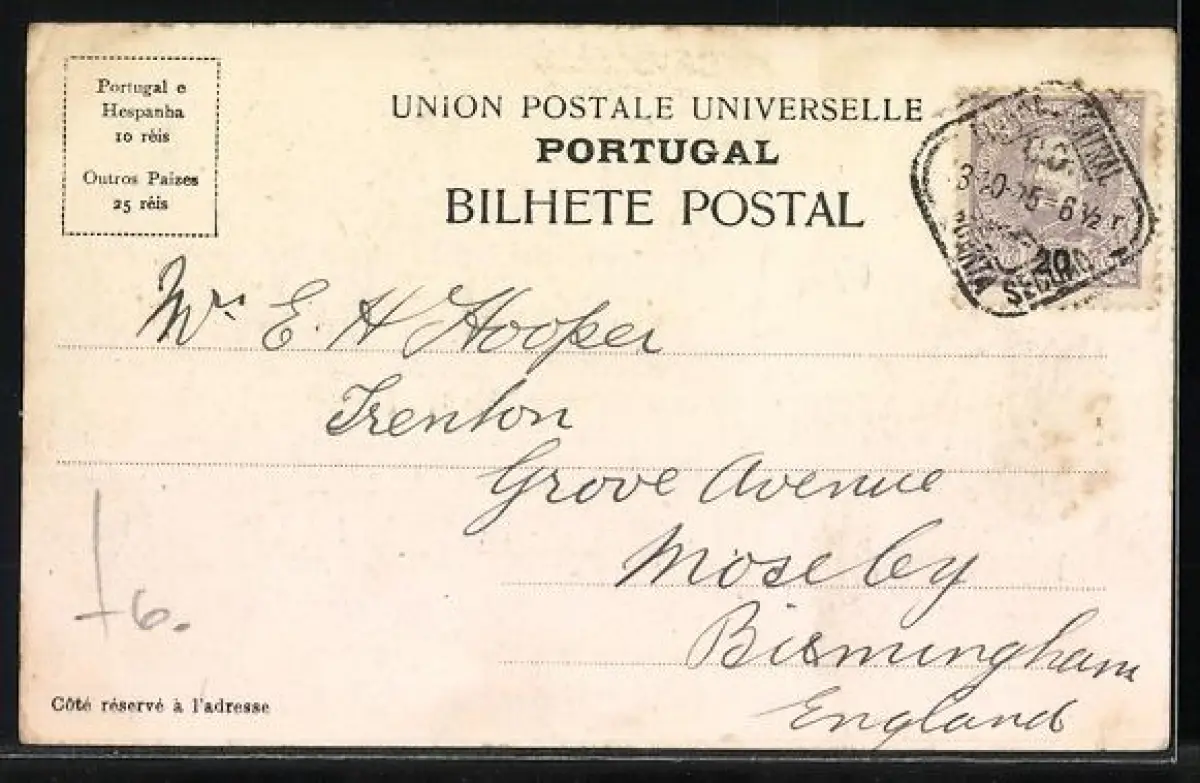 Portugal e
Hespanha
10 réis
Outros Paizes
25 réis
UNiON POSTALE UNIVERSELLE
PORTUGAL
BILHETE POSTAL
20
Mr. E. H Hooper
Trenton
Grove Avenue
Moseley
Birmingham
England
6.
Côté réservé à l'adresse